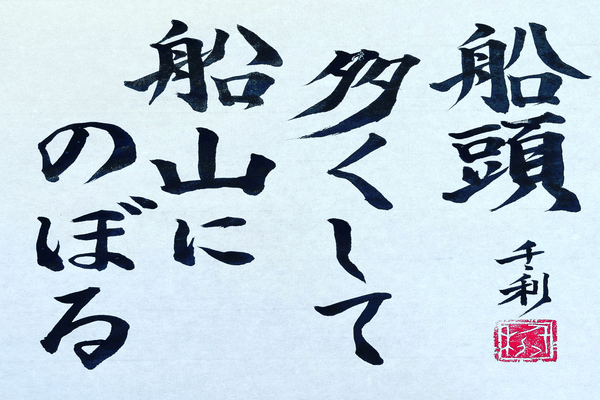 船頭
多くして
船山に
のぼる
千利